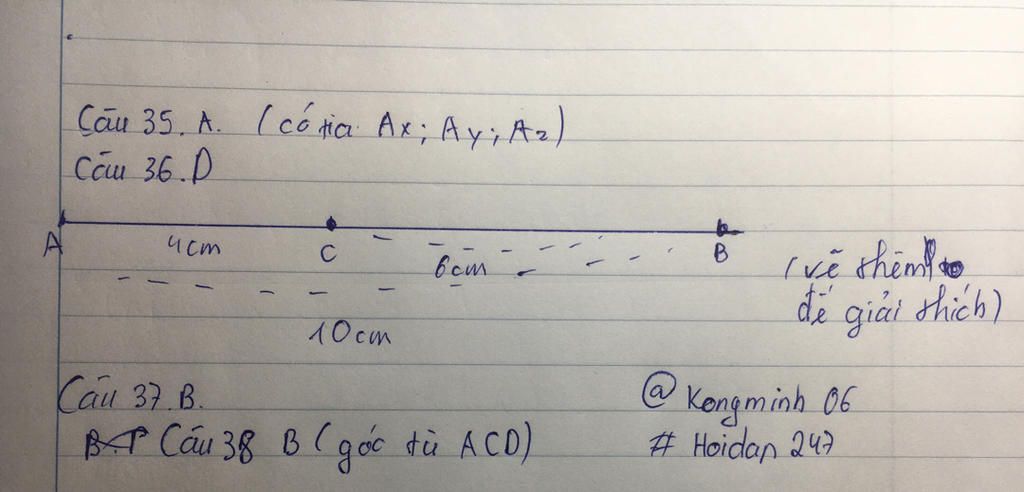 Câu 35. A. (có tia Ax; Ay; Az)
Câu 36. D
A 4cm C 6cm B
10cm
(vẽ thêm
để giải thích)
Câu 37. B.
Câu 38 B (góc tù ACD)
@ Kongminh 06
# Hoidap 247